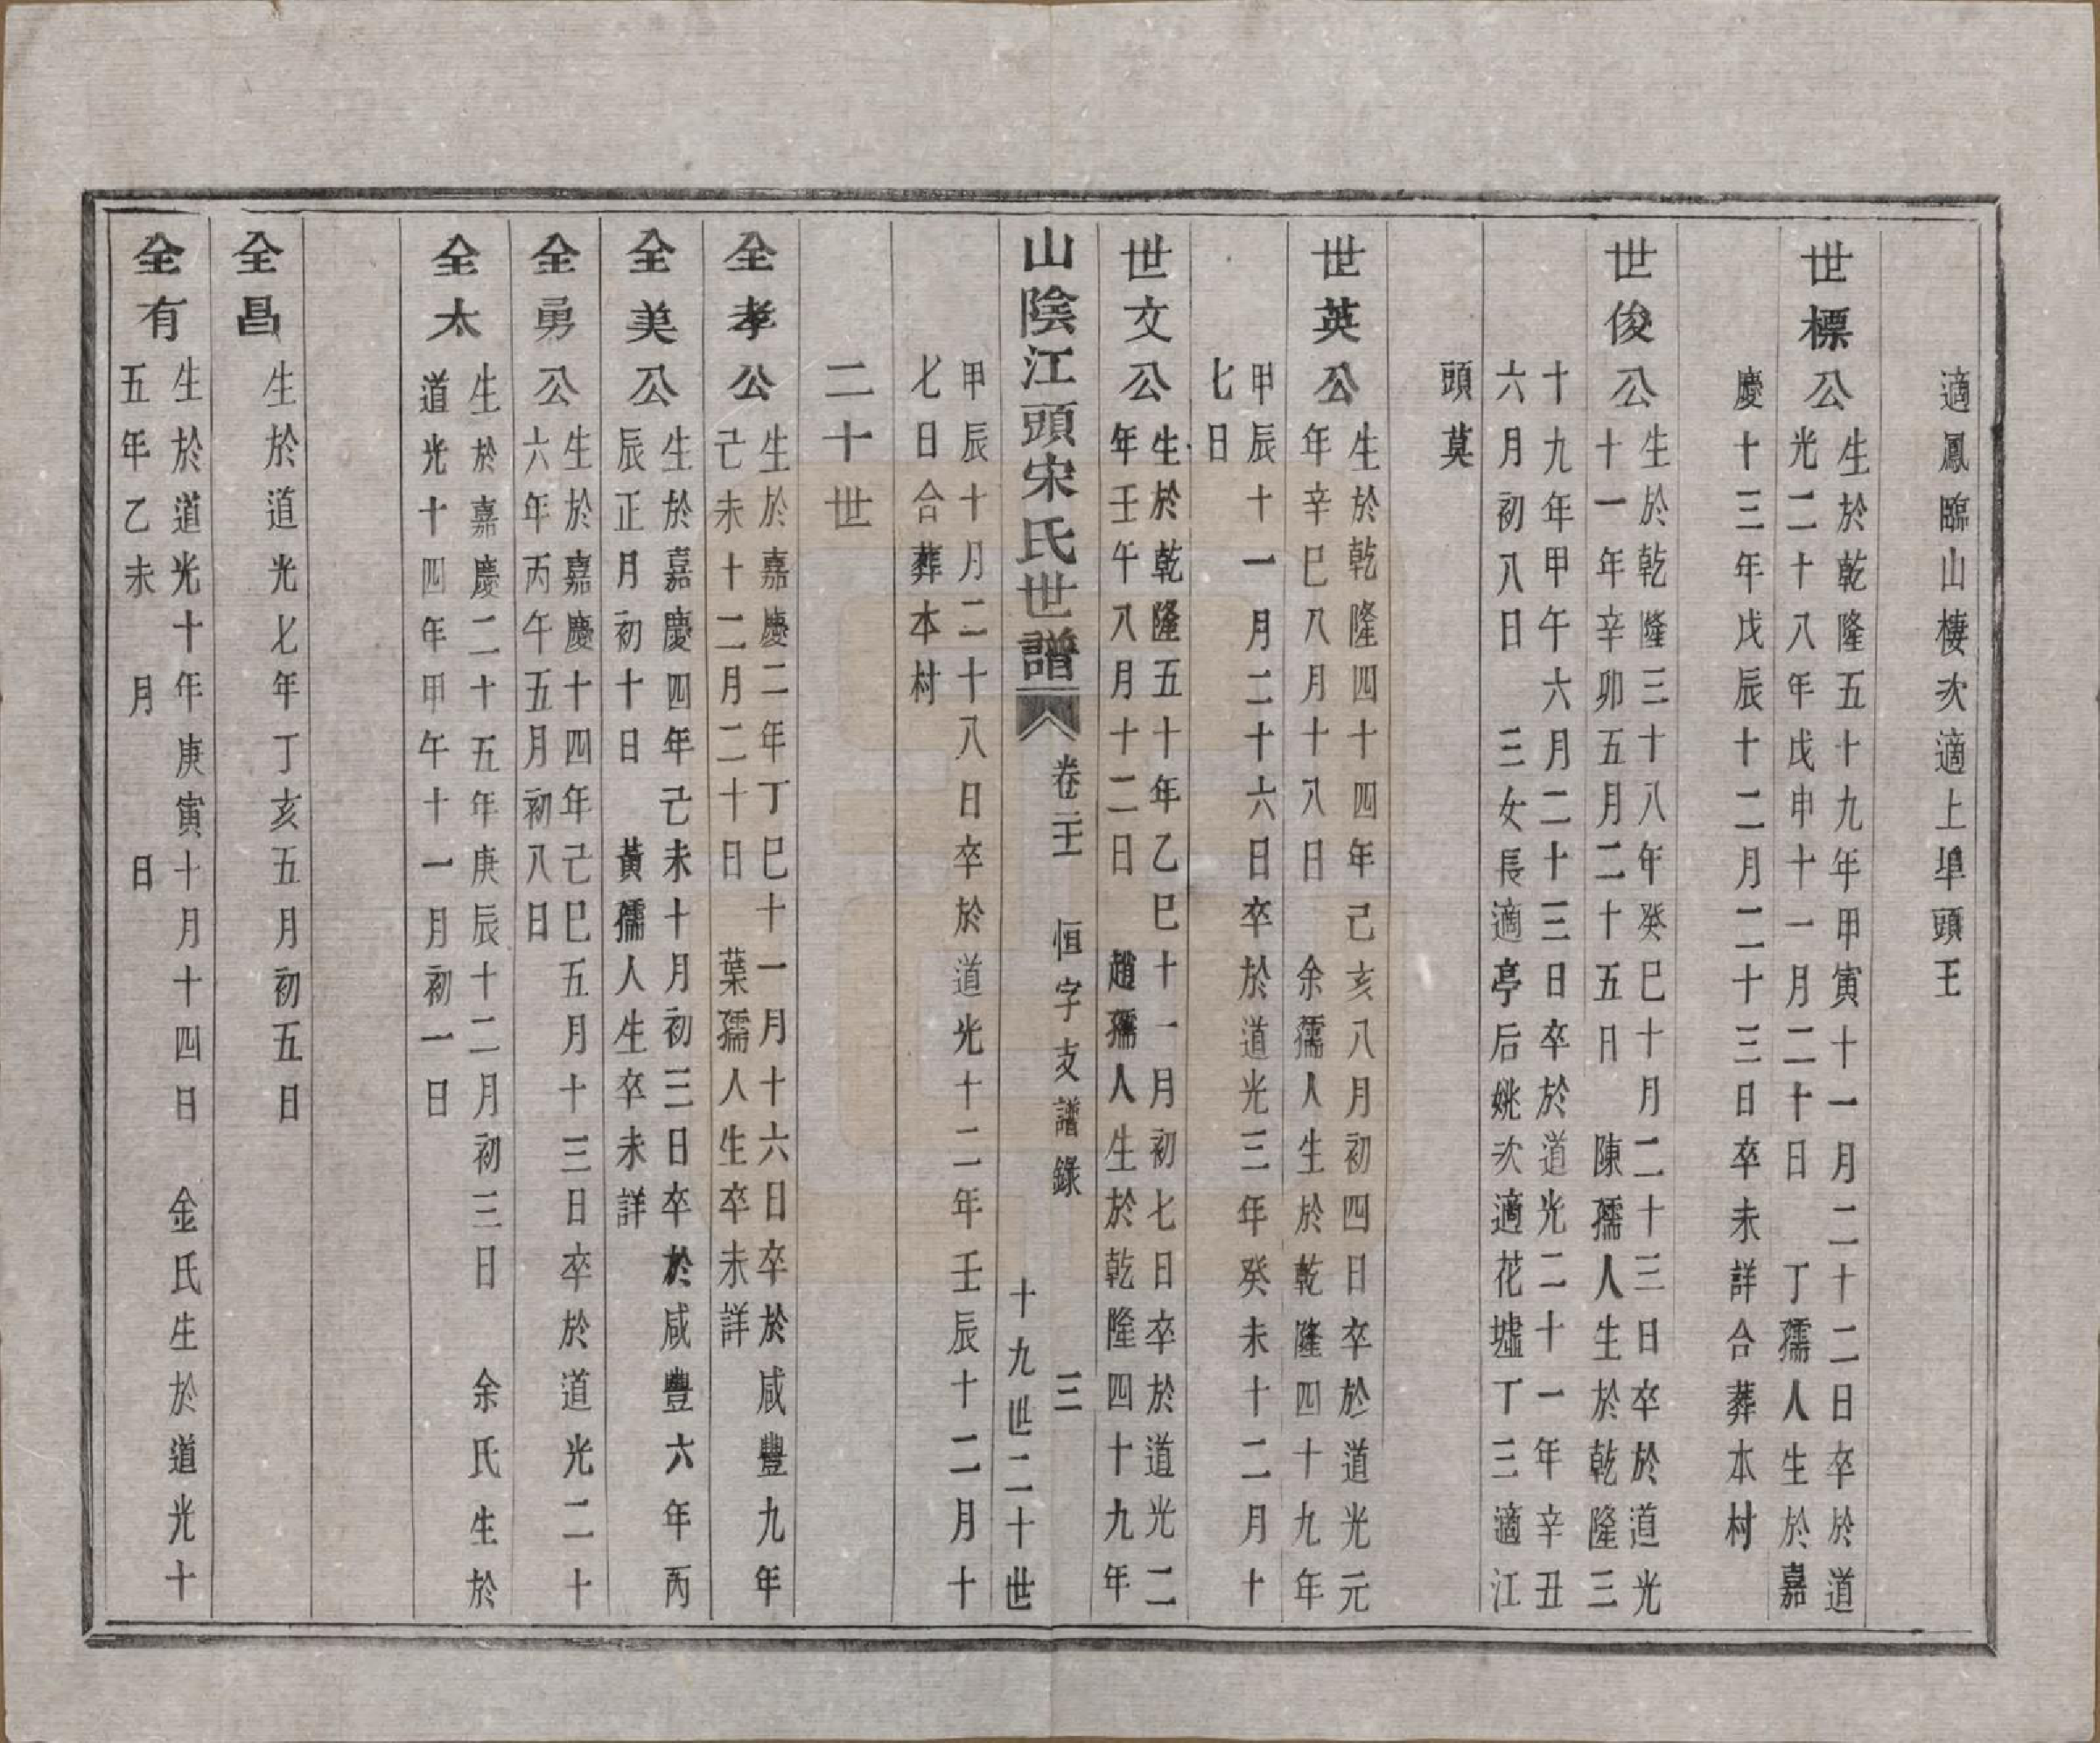 適鳳臨山棲次適上埠頭王
世標公
生於乾隆五十九年甲寅十一月二十二日卒於道
光二十八年戊申十一月二十日　丁孺人生於嘉
慶十三年戊辰十二月二十三日卒未詳合葬本村
世俊公
生於乾隆三十八年癸巳十月二十三日卒於道光
十一年辛卯五月二十五日　陳孺人生於乾隆三
十九年甲午六月二十三日卒於道光二十一年辛丑
六月初八日　三女長適亭后姚次適花墟丁三適江
頭莫
世英公
生於乾隆四十四年己亥八月初四日卒於道光元
年辛巳八月十八日　余孺人生於乾隆四十九年
甲辰十一月二十六日卒於道光三年癸未十二月十
七日
世文公
生於乾隆五十年乙巳十一月初七日卒於道光二
年壬午八月十二日　趙孺人生於乾隆四十九年
山陰江頭宋氏世譜
卷二十一　恒字支譜錄　三
十九世二十世
甲辰十月二十八日卒於道光十二年壬辰十二月十
七日合葬本村
二十世
全孝公
生於嘉慶二年丁巳十一月十六日卒於咸豐九年
己未十二月二十日　葉孺人生卒未詳
全美公
生於嘉慶四年己未十月初三日卒於咸豐六年丙
辰正月初十日　黃孺人生卒未詳
全勇公
生於嘉慶十四年己巳五月十三日卒於道光二十
六年丙午五月初八日
全太
生於嘉慶二十五年庚辰十二月初三日　余氏生於
道光十四年甲午十一月初一日
全昌
生於道光七年丁亥五月初五日
全有
生於道光十年庚寅十月十四日　金氏生於道光十
五年乙未　月　日